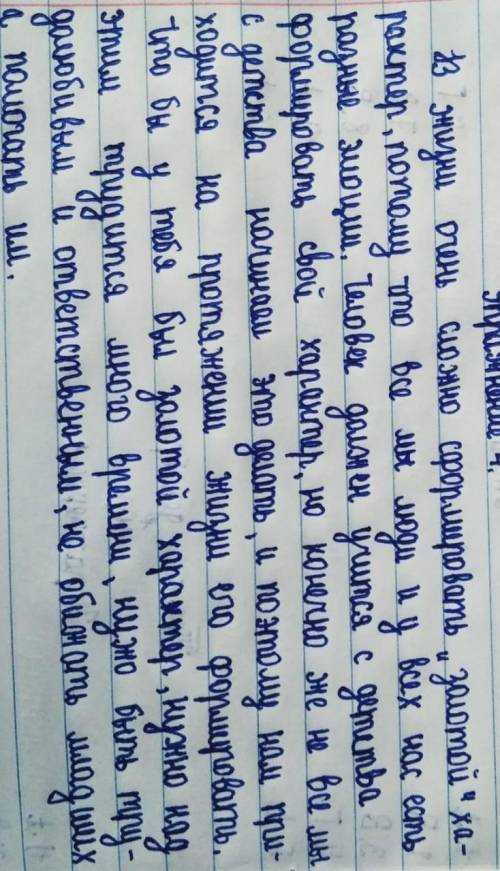 Из жизни очень сложно сформировать "золотой" ха-
рактер, потому что все мы люди и у всех нас есть
разные эмоции. Человек должен учится с детства
формировать свой характер, но конечно же не все мы
с детства начинаем это делать, и поэтому нам при-
ходится на протяжении жизни его формировать.
Что бы у тебя был золотой характер, нужно над
этим трудится много времени, нужно быть тру-
долюбивым и ответственным, не обижать младших
а помогать им.